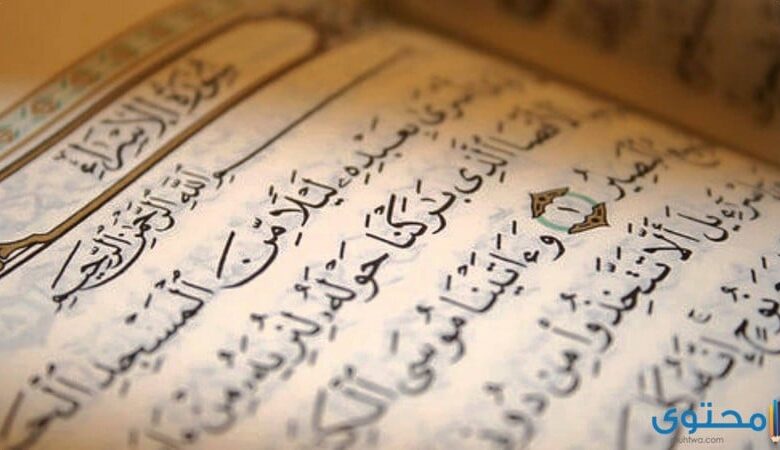 سُورَةُ الإِسْرَاءِ
بِسْمِ ٱللَّهِ ٱلرَّحْمَٰنِ ٱلرَّحِيمِ
أَسْرَىٰ بِعَبْدِهِۦ لَيْلًا مِّنَ ٱلْمَسْجِدِ
ٱلْأَقْصَا ٱلَّذِى بَٰرَكْنَا حَوْلَهُۥ لِنُرِيَهُۥ مِنْ
ٱلْبَصِيرُ ١ وَءَاتَيْنَا مُوسَى
إِسْرَٰٓءِيلَ أَلَّا تَتَّخِذُوا۟ مِن
نُوحٍ إِنَّهُۥ
محتوى
uhtwa.com